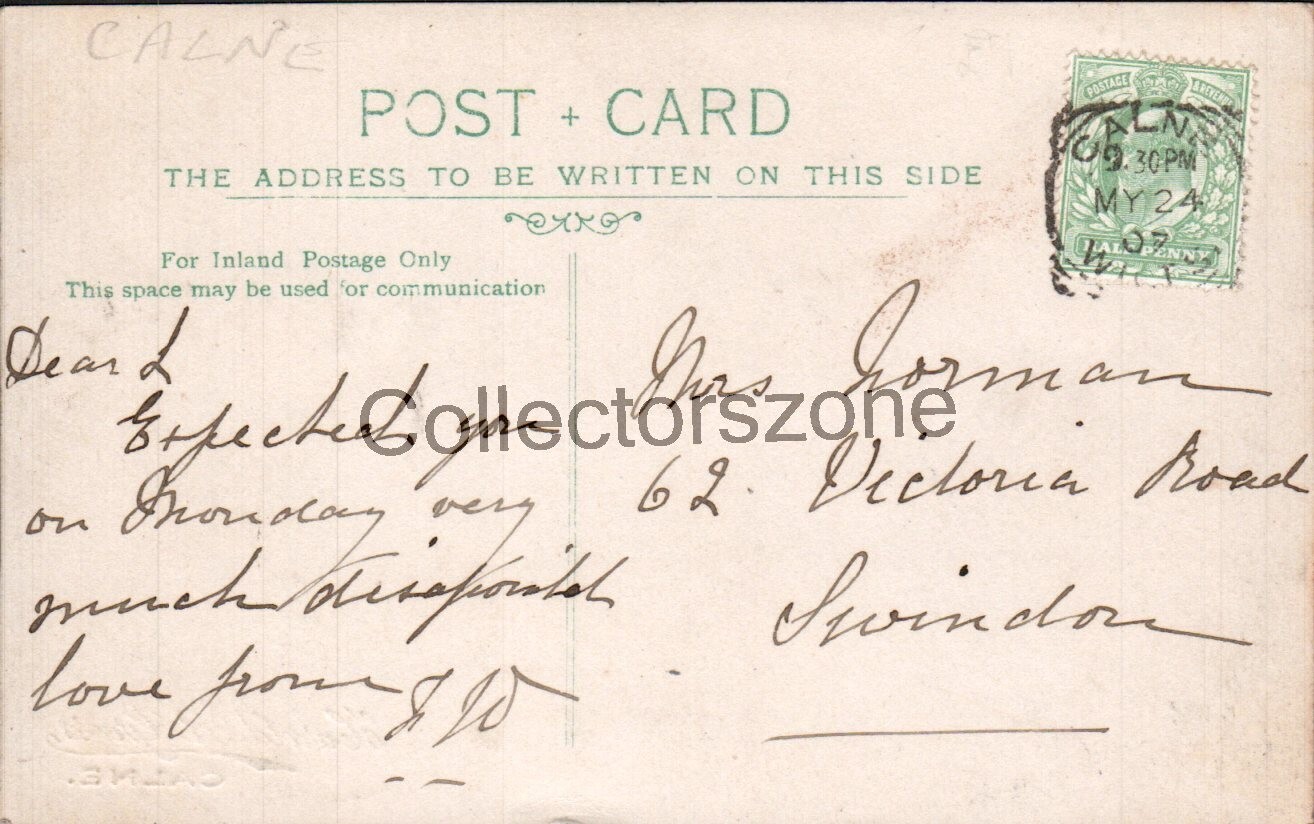 CALNE
POST + CARD
THE ADDRESS TO BE WRITTEN ON THIS SIDE
For Inland Postage Only
This space may be used for communication
POSTAGE & REVENUE
HALFPENNY
CALNE
9.30PM
MY 24
07
WILTS
Dear L
Expected you
on Monday very
much disapointd
love from F W
Mrs Norman
62 Victoria Road
Swindon
Collectorszone
CALNE.